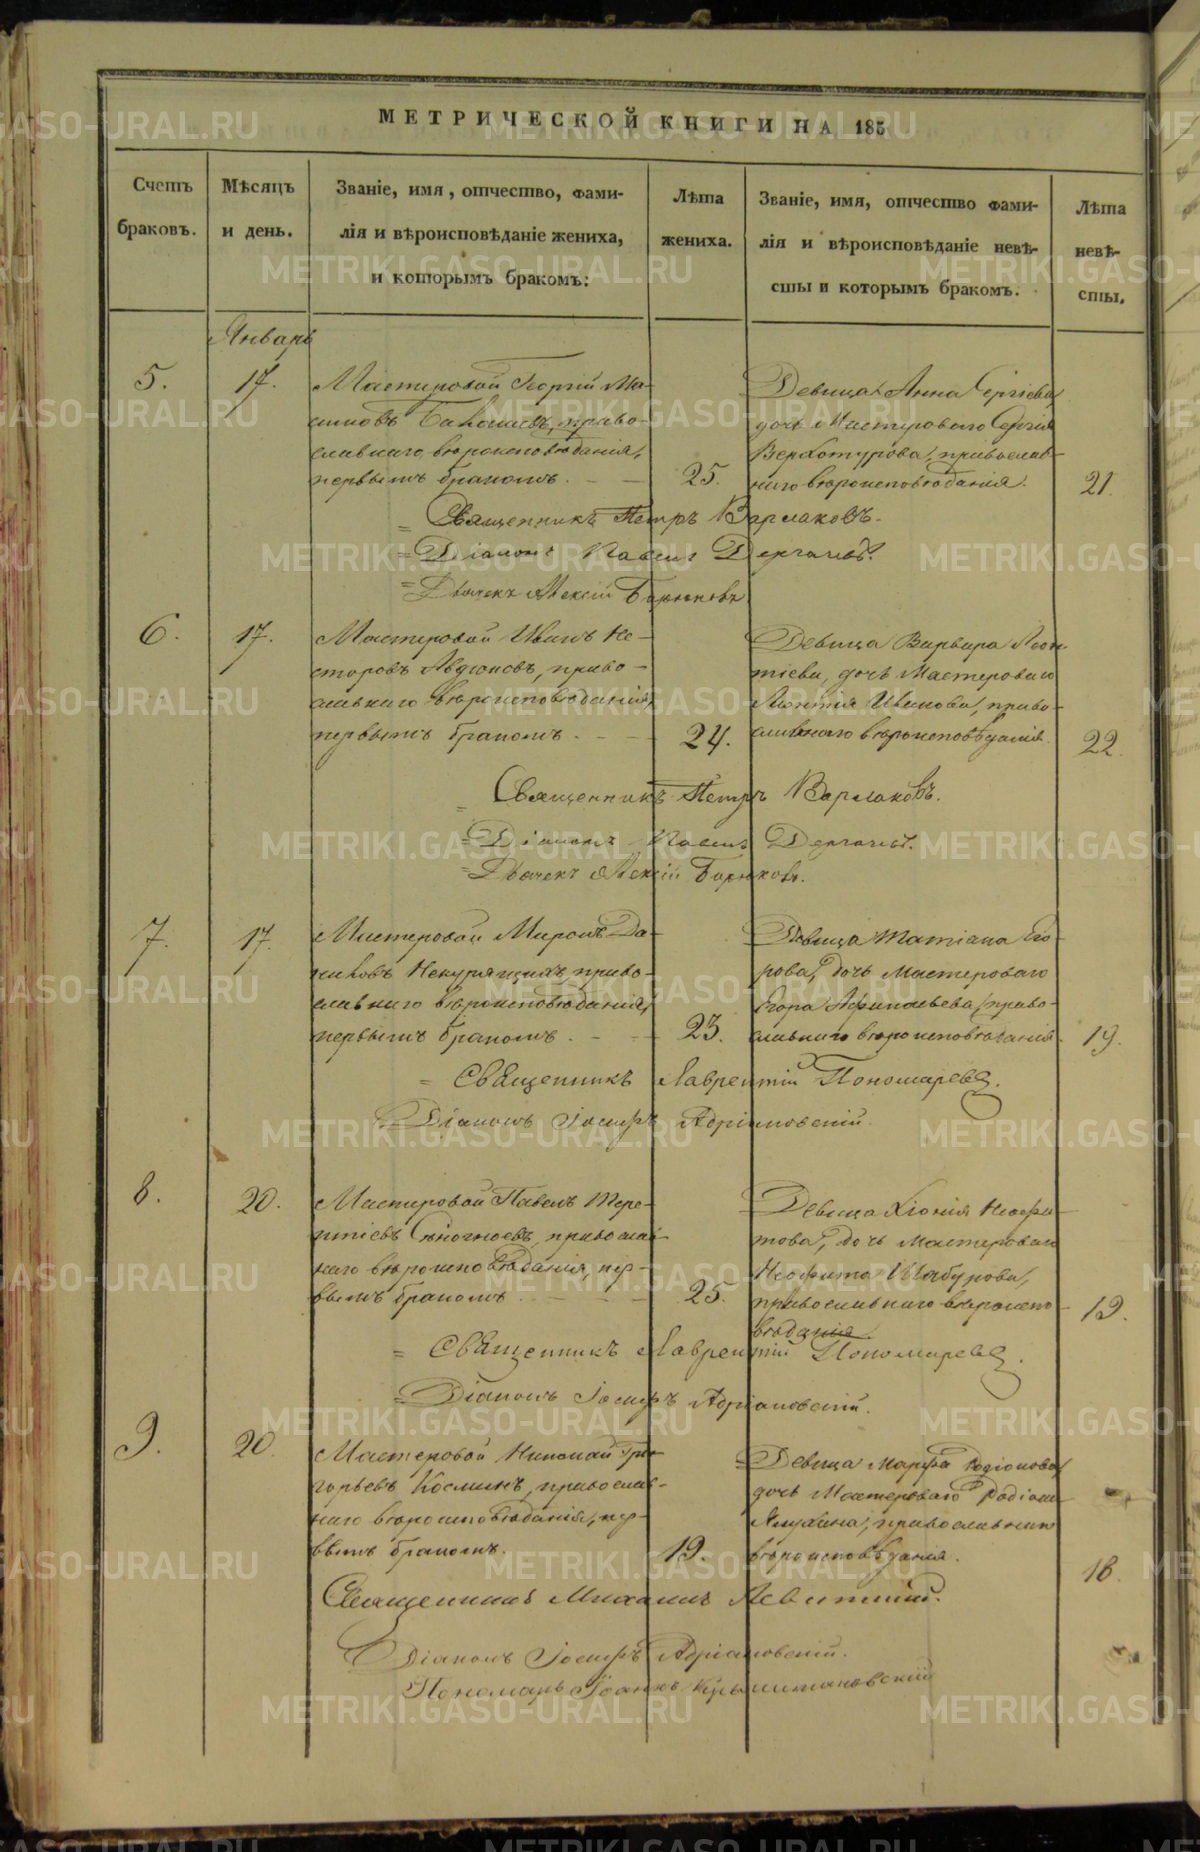 МЕТРИЧЕСКОЙ КНИГИ НА 185
Счетъ браковъ.
Мѣсяцъ и день.
Званіе, имя, отчество, фами-
лія и вѣроисповѣданіе жениха,
и которымъ бракомъ:
Лѣта жениха.
Званіе, имя, отчество фами-
лія и вѣроисповѣданіе невѣ-
сты и которымъ бракомъ.
Лѣта невѣ-
сты.
Январь
5.
17.
Мастеровой Георгій Ма-
право-
славнаго вѣроисповѣданія,
первымъ бракомъ.
25.
Девица Анна Сергіева
дочь Мастероваго Сергія
Верхотурова, православ-
наго вѣроисповѣданія.
21.
Священникъ Петръ Варлаковъ.
Діаконъ Павелъ Дергачевъ.
Дьячекъ Алексій Бирюковъ
6.
17.
Мастеровой Иванъ Не-
сторовъ Авдюковъ, право-
славнаго вѣроисповѣданія,
первымъ бракомъ.
24.
Девица Варвара Леон-
тіева, дочь Мастероваго
Леонтія Иванова, право-
славнаго вѣроисповѣданія.
22.
Священникъ Петръ Варлаковъ.
Діаконъ Павелъ Дергачевъ.
Дьячекъ Алексій Бирюковъ.
7.
17.
Мастеровой Миронъ Да-
ниловъ Некурящихъ, право-
славнаго вѣроисповѣданія,
первымъ бракомъ.
23.
Девица Татіана Его-
рова, дочь Мастероваго
Егора Афанасьева, право-
славнаго вѣроисповѣданія.
19.
Священникъ Лаврентій Пономаревъ.
Діаконъ Іосифъ Адріановскій.
8.
20.
Мастеровой Павелъ Тере-
нтіевъ православ-
наго вѣроисповѣданія, пер-
вымъ бракомъ.
25.
Девица Хіонія Неофи-
това, дочь Мастероваго
Неофита Шабурова,
православнаго вѣроиспо-
вѣданія.
19.
Священникъ Лаврентій Пономаревъ.
Діаконъ Іосифъ Адріановскій.
9.
20.
Мастеровой Николай Гри-
горьевъ Косминъ, православ-
наго вѣроисповѣданія, пер-
вымъ бракомъ.
19.
Девица Марфа Родіонова,
дочь Мастероваго Родіона
православнаго
вѣроисповѣданія.
18.
Священникъ Михаилъ Левитскій.
Діаконъ Іосифъ Адріановскій.
Пономарь Іоаннъ
METRIKI.GASO-URAL.RU